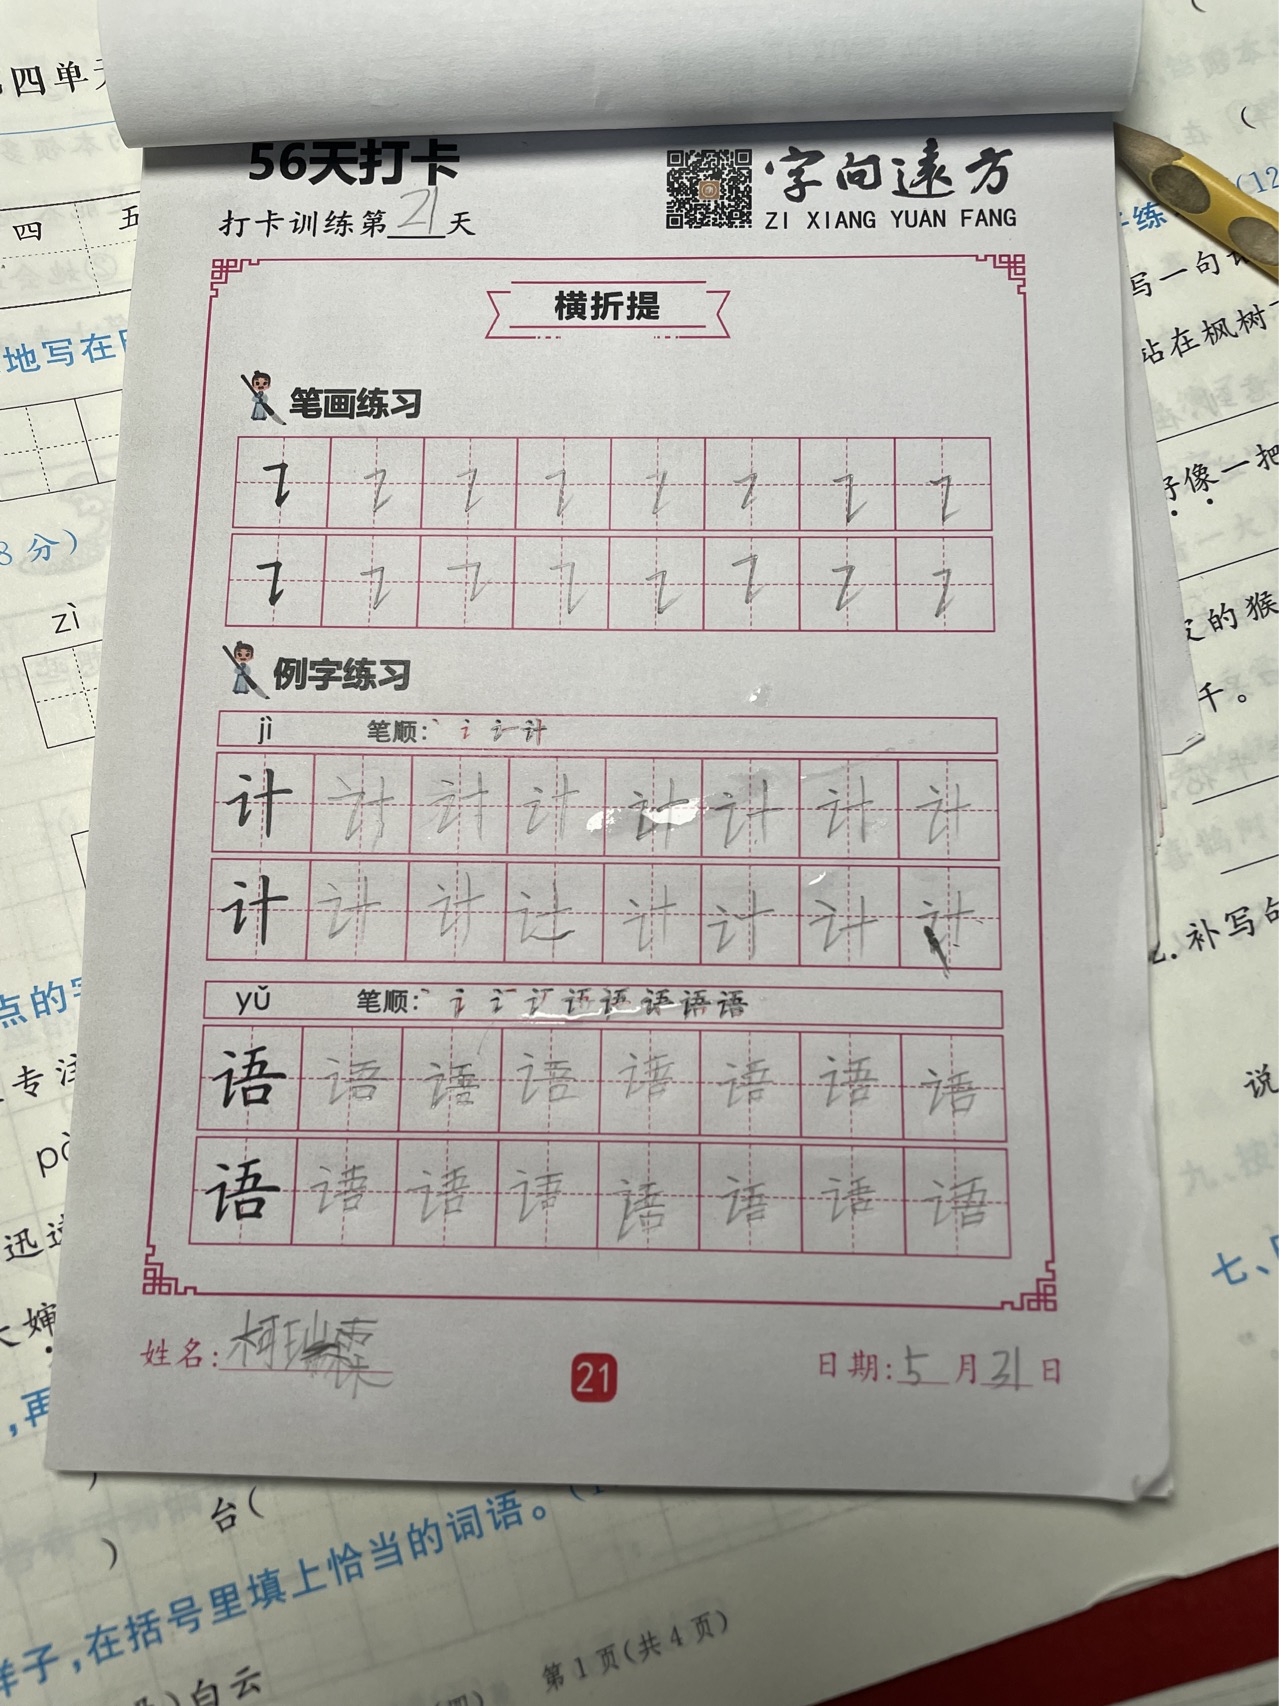 56天打卡
字向远方
打卡训练第21天
ZI XIANG YUAN FANG
横折提
笔画练习
例字练习
jì 笔顺:
计 计 计 计 计 计 计 计
计 计 计 计 计 计 计 计
yǔ 笔顺:
语 语 语 语 语 语 语 语
语 语 语 语 语 语 语 语
姓名:柯瑞霖
21
日期:5月31日
四单
四 五
地写在
8分)
zì
点的
专注
迅速
大婶
,再
台(
)
样子,在括号里填上恰当的词语。
)白云
第1页(共4页)
(四)
(12
练
写一句
站在枫树
好像一把
的猴
千。
2.补写句
说
七、